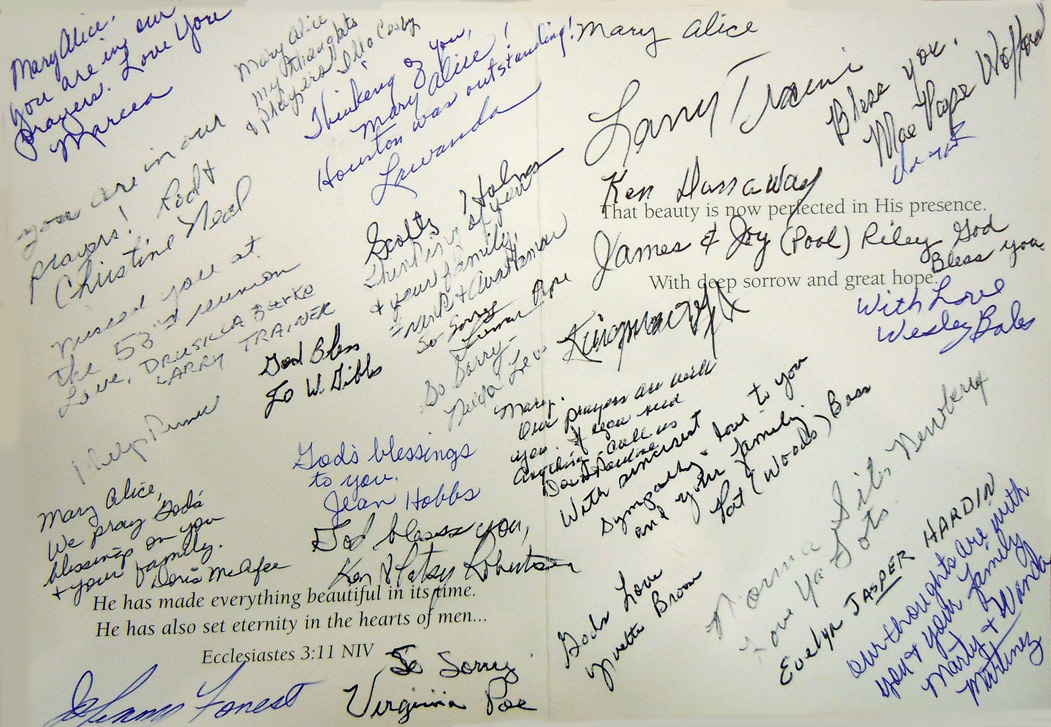 Mary Alice,
you are in our
prayers. Love You
Marcea
Mary Alice
My thoughts
& prayers Illa Cosby
Thinking of you,
Mary Alice!
Houston was outstanding!
Lawanda
you are in our
prayers! Rod &
Christine Neal
Missed you at
the 53rd reunion
Love, DRUSILLA Burke
LARRY TRAINER
God Bless
Jo W. Gibbs
Scotty Holmes
Thinking of you
& your family
So Sorry
Pope
So Sorry
God's blessings
to you.
Jean Hobbs
Mary Alice,
We pray God's
blessings on you
& your family.
Doris McAfee
God bless you,
Ken & Patsy Robertson
He has made everything beautiful in its time.
He has also set eternity in the hearts of men...
Ecclesiastes 3:11 NIV
JoAnn Forest
So Sorry
Virginia Poe
Mary Alice
Larry
Bless you.
Mae Pope Wofford
Ken Hassaway
That beauty is now perfected in His presence.
James & Joy (Pool) Riley God
Bless you
With deep sorrow and great hope.
With Love
Wesley Bales
Mary.
Our prayers are with
you if you need
Anything - Call us
With sincerest love to you
sympathy
and your family.
Pat (Woods) Bass
Norma Newberry
Love Ya Lots
Evelyn JASPER HARDIN
Gods Love
Yvette Broom
Our thoughts are with
you & your family
Marty & Wanda
Martinez